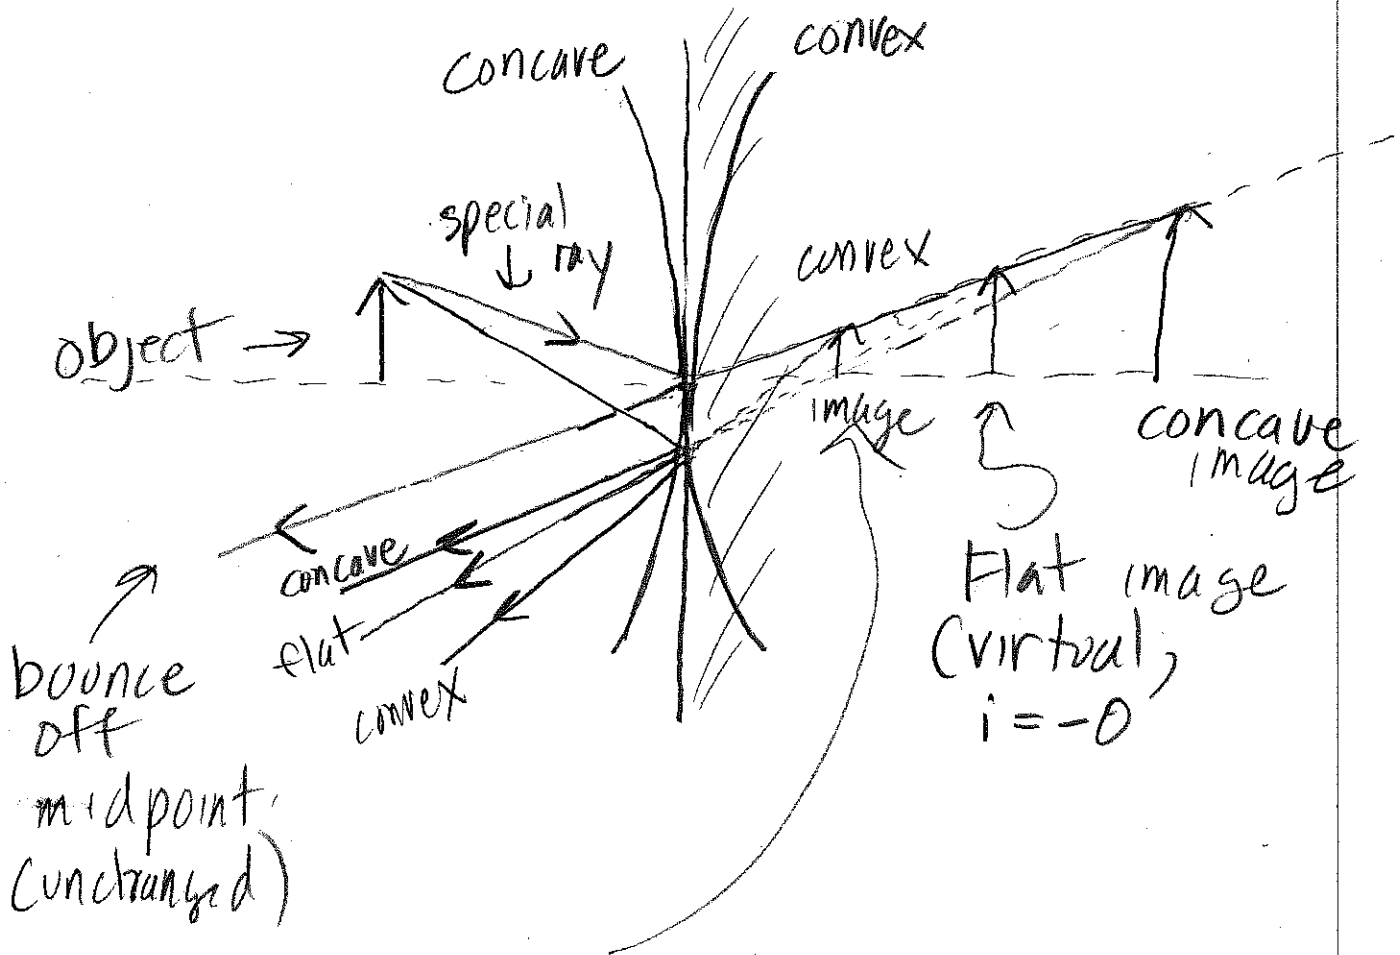 concave
convex
special
ray
convex
object
image
concave
image
concave
flat
convex
Flat image
(virtual,
i = -o
bounce
off
midpoint
(unchanged)